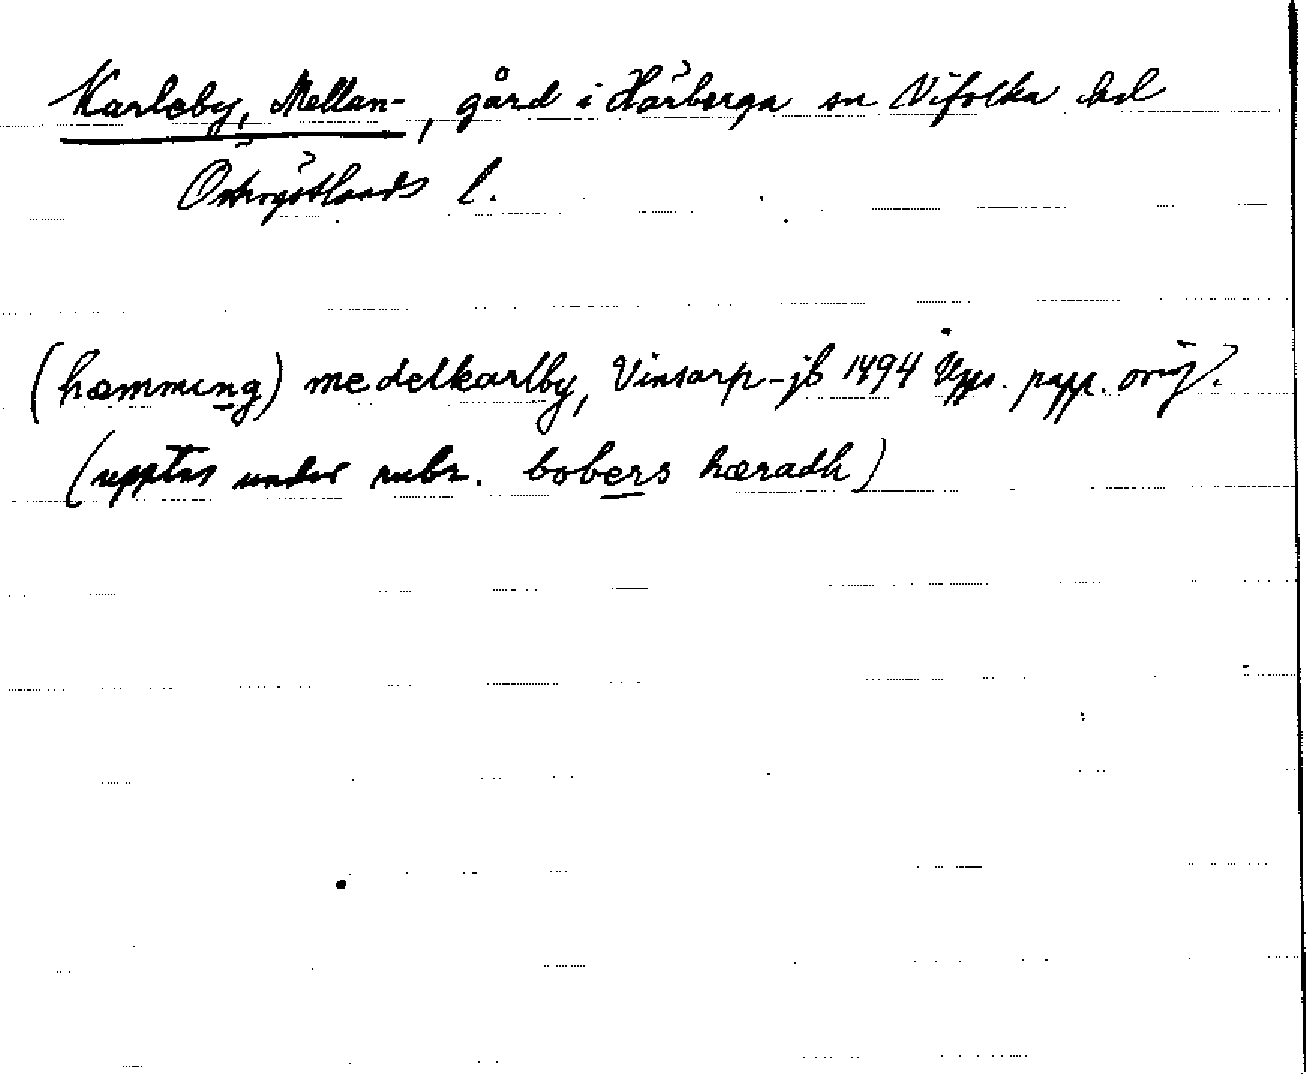 Karleby, Mellan-, gård i Härberga sn Vifolka hd
Östergötlands l.
(hæmming) medelkarlby, Vinsarp-jb 1494 Upps. papp. orig.
(upptas under rubr. bobers hæradh)